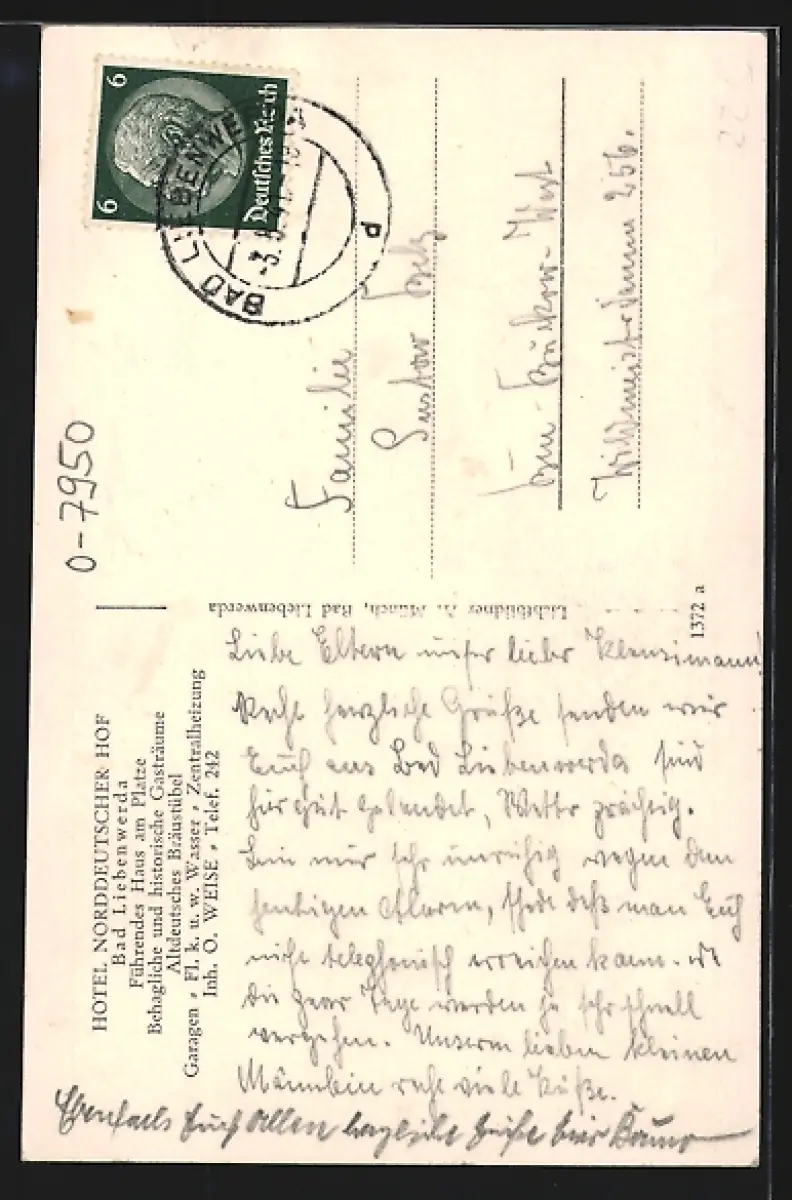 HOTEL NORDDEUTSCHER HOF
Bad Liebenwerda
Führendes Haus am Platze
Behagliche und historische Gasträume
Altdeutsches Bräustübel
Garagen, Fl. k. u. w. Wasser, Zentralheizung
Inh. O. WEISE, Telef. 242
Lichtbildner A. Münch, Bad Liebenwerda
1372 a
0-7950
6
6
Deutsches Reich
BAD LIEBENWE
-3.8.41
d
Familie
Gustav
Bln-Buckow-West
Wildmeisterdamm 256.
Liebe Eltern unser lieber
Recht herzliche Grüße senden wir
Euch aus Bad Liebenwerda sind
hier gut gelandet, Wetter prächtig.
Bin nur sehr unruhig wegen dem
heutigen Alarm, schade daß man Euch
nicht telephonisch erreichen kann.
Die paar Tage werden ja sehr schnell
vergehen. Unserem lieben kleinen
Männlein recht viele Küße.
Ebenfals Euch Allen herzliche Grüße